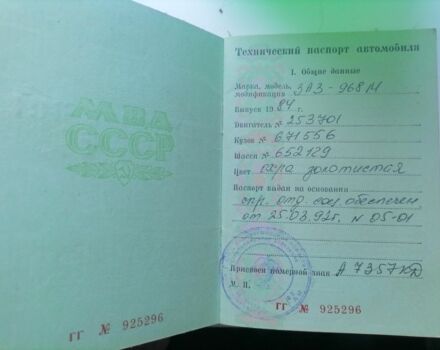 МВД
СССР
ГГ № 925296
Технический паспорт автомобиля
I. Общие данные
Марка, модель, модификация ЗАЗ-968М
Выпуск 1984 г.
Двигатель № 253701
Кузов № 671556
Шасси № 652129
Цвет охра золотистая
Паспорт выдан на основании
спр. отд. соц. обеспечен
от 25.03.92г. N 05-01
Присвоен номерной знак А 7357 КД
М. П.
ГГ № 925296